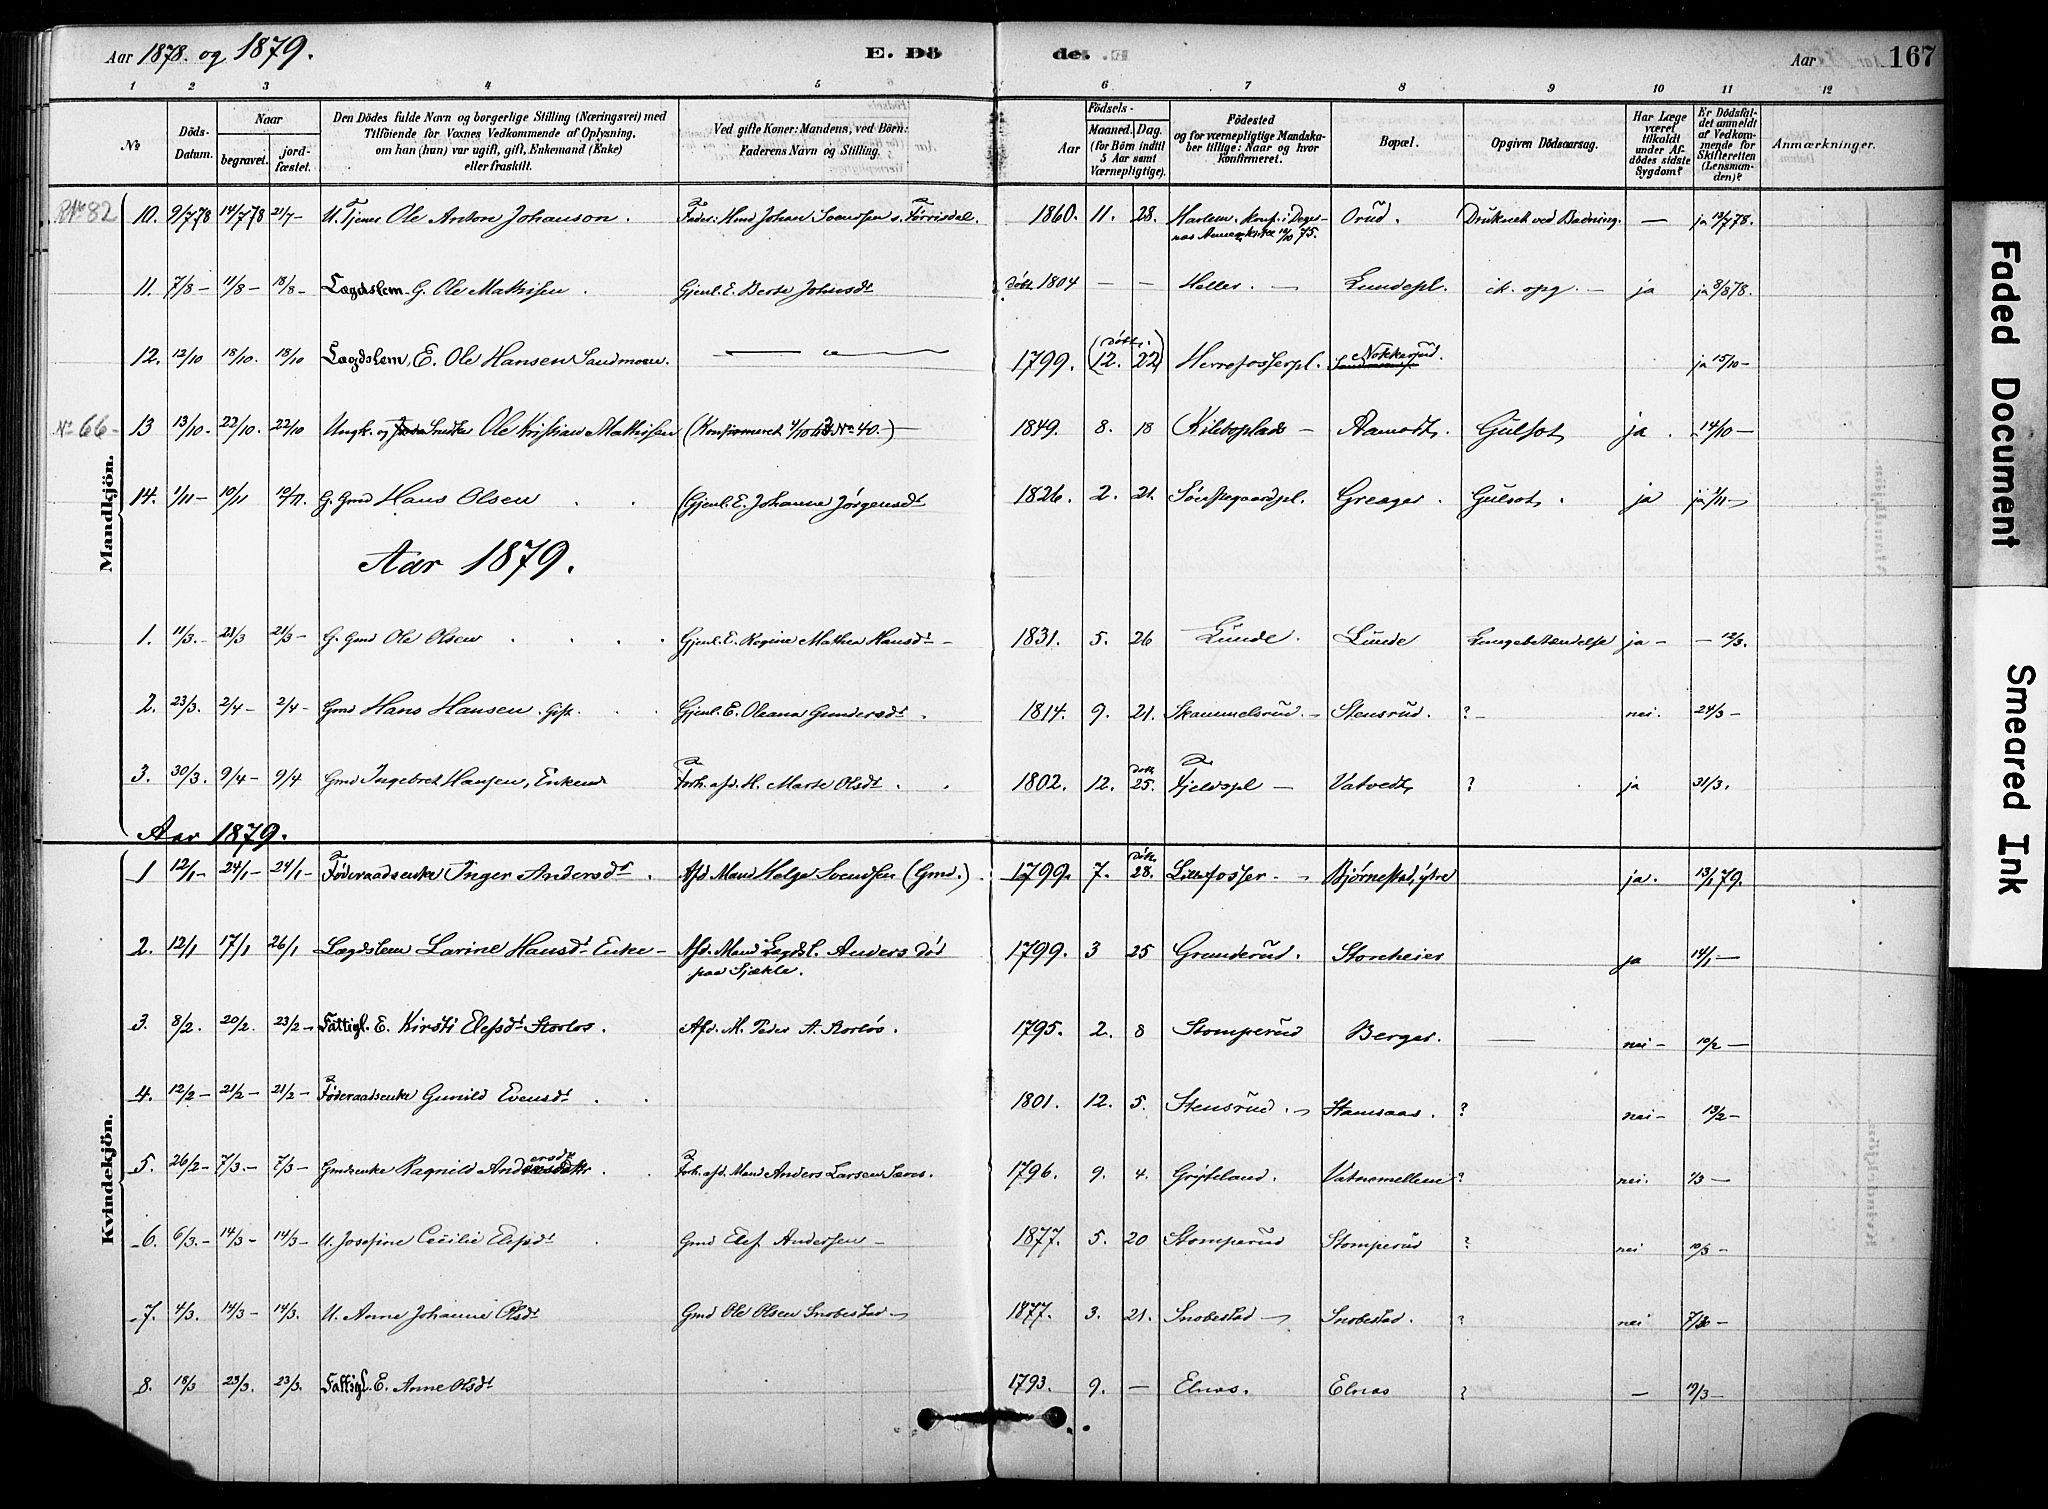 Aar 1878. og 1879. E. Dö de. Aar 167
1 2 3 4 5 6 7 8 9 10 11 12
No
Döds-Datum.
Naar
begravet. jordfæstet.
Den Dödes fulde Navn og borgerlige Stilling (Næringsvei) med
Tilföiende for Voxnes Vedkommende af Oplysning,
om han (hun) var ugift, gift, Enkemand (Enke)
eller fraskilt.
Ved gifte Koner: Mandens, ved Börn:
Faderens Navn og Stilling.
Födsels-
Aar Maaned. Dag.
(for Börn indtil
5 Aar samt
Værnepligtige).
Födested
og for værnepligtige Mandskaber tillige: Naar og hvor
Konfirmeret.
Bopæl.
Opgiven Dödsaarsag.
Har Læge
været
tilkaldt
under Afdödes sidste
Sygdom?
Er Dödsfaldet anmeldt
af Vedkommende for
Skifteretten
(Lensmanden)?
Anmærkninger.
Mandkjön.
82 10. 9/7 78 14/7 78 21/7- U. Tjener Ole Anton Johanson. Fader: Johan Svensen 1860. 11. 28. Harlem. Konf. i 75. Orud. Druknet ved Badning. — ja 13/7 78.
11. 7/8- 11/8- 18/8- Lægdslem G. Ole Mathisen. Gjenl. E. Berte Johnsdt døbt 1804 — — Haller. — Lundepl. ik. opg. — ja ja 8/8 78.
12. 12/10 18/10. 18/10 Lægdslem, E. Ole Hansen Sandmoen. — " — 1799. (døbt 12. 22) Herrefosserpl. Nokkerud. ja 15/10-
No 66- 13 13/10. 22/10. 22/10 Ungk. og Snedker Ole Kristian Mathisen (Konfirmeret No 40.)— 1849. 8. 18 Kileboplads — Aamodt. Gulsot, ja. 14/10-
14. 1/11- 10/11 10/11. G. Gmd Hans Olsen (Gjenl. E. Johanne Jørgensdt 1826. 2. 21. Sørskogaardpl. Greager. Gulsot. ja ja 1/11-
Aar 1879.
1. 11/3.- 21/3 21/3- G. Gmd Ole Olsen Gjenl. E. Regine Mathea Hansdt- 1831. 5. 26 Lunde. Lunde Lungebetændelse ja- -12/3.
2. 23/3. 2/4- 2/4- Gmd Hans Hansen. Gift. Gjenl. E. Oleana Gundersdt. 1814. 9. 21. Skammelsrud.- Stensrud. ?- nei. 24/3-
3. 30/3. 9/4- 9/4 Gmd Ingebret Hansen, Enkem Forh. afd. H. Marte Olsdt. 1802. 12. døbt 25. Fjeldspl — Vatvedt, ? ja 31/3.
Aar 1879.
Kvindekjön.
1 12/1- 24/1- 24/1- Føderaadsenke Inger Andersdt. Afd. Mand Helge Svendsen (Gmd.) 1799. 7. døbt 28. Lillefosser- Bjørnestad, ytre ja. 13/1 79.
2. 12/1 17/1 26/1 Lægdslem Larine Hansdt Enke- Afd. Mand Lægdsl. Anders død
paa Sjækle. 1799. 3 25 Grunderud. Storeheier ja 14/1-
3. 8/2. 20/2. 23/2- Fattigl. E. Kirsti Elefsdt Storløs. Afd. M. Peder A. Storløs. 1795. 2. 8 Stomperud Berger. — nei- 10/2-
4. 12/2- 21/2- 21/2- Føderaadsenke Gunild Evensdt. 1801. 12. 5. Stensrud.- Stamsaas. ? nei- 13/2-
5. 26/2- 7/3.- 7/3- Gmdsenke Ragnild Andersdt. Forh. afd. Mand Anders Larsen 1796. 9. 4. Gryteland. Vatnemellem ? nei. 1/3-
6. 6/3.- 14/3- 14/3- U. Josefine Cecilie Elefsdt. Gmd Elef Andersen- 1877. 5. 20 Stomperud Stomperud ? nei 10/3-
7. 4/3. 14/3- 14/3. U. Anne Johanne Olsdt Gmd Ole Olsen Snobestad- 1877. 3. 21. Snobestad- Snobestad. ? nei
8. 18/3 23/3. 23/3. Fattigl. E. Anne Olsdt 1793. 9. — Elnæs. Elnæs ? — 19/3-
Faded Document
Smeared Ink